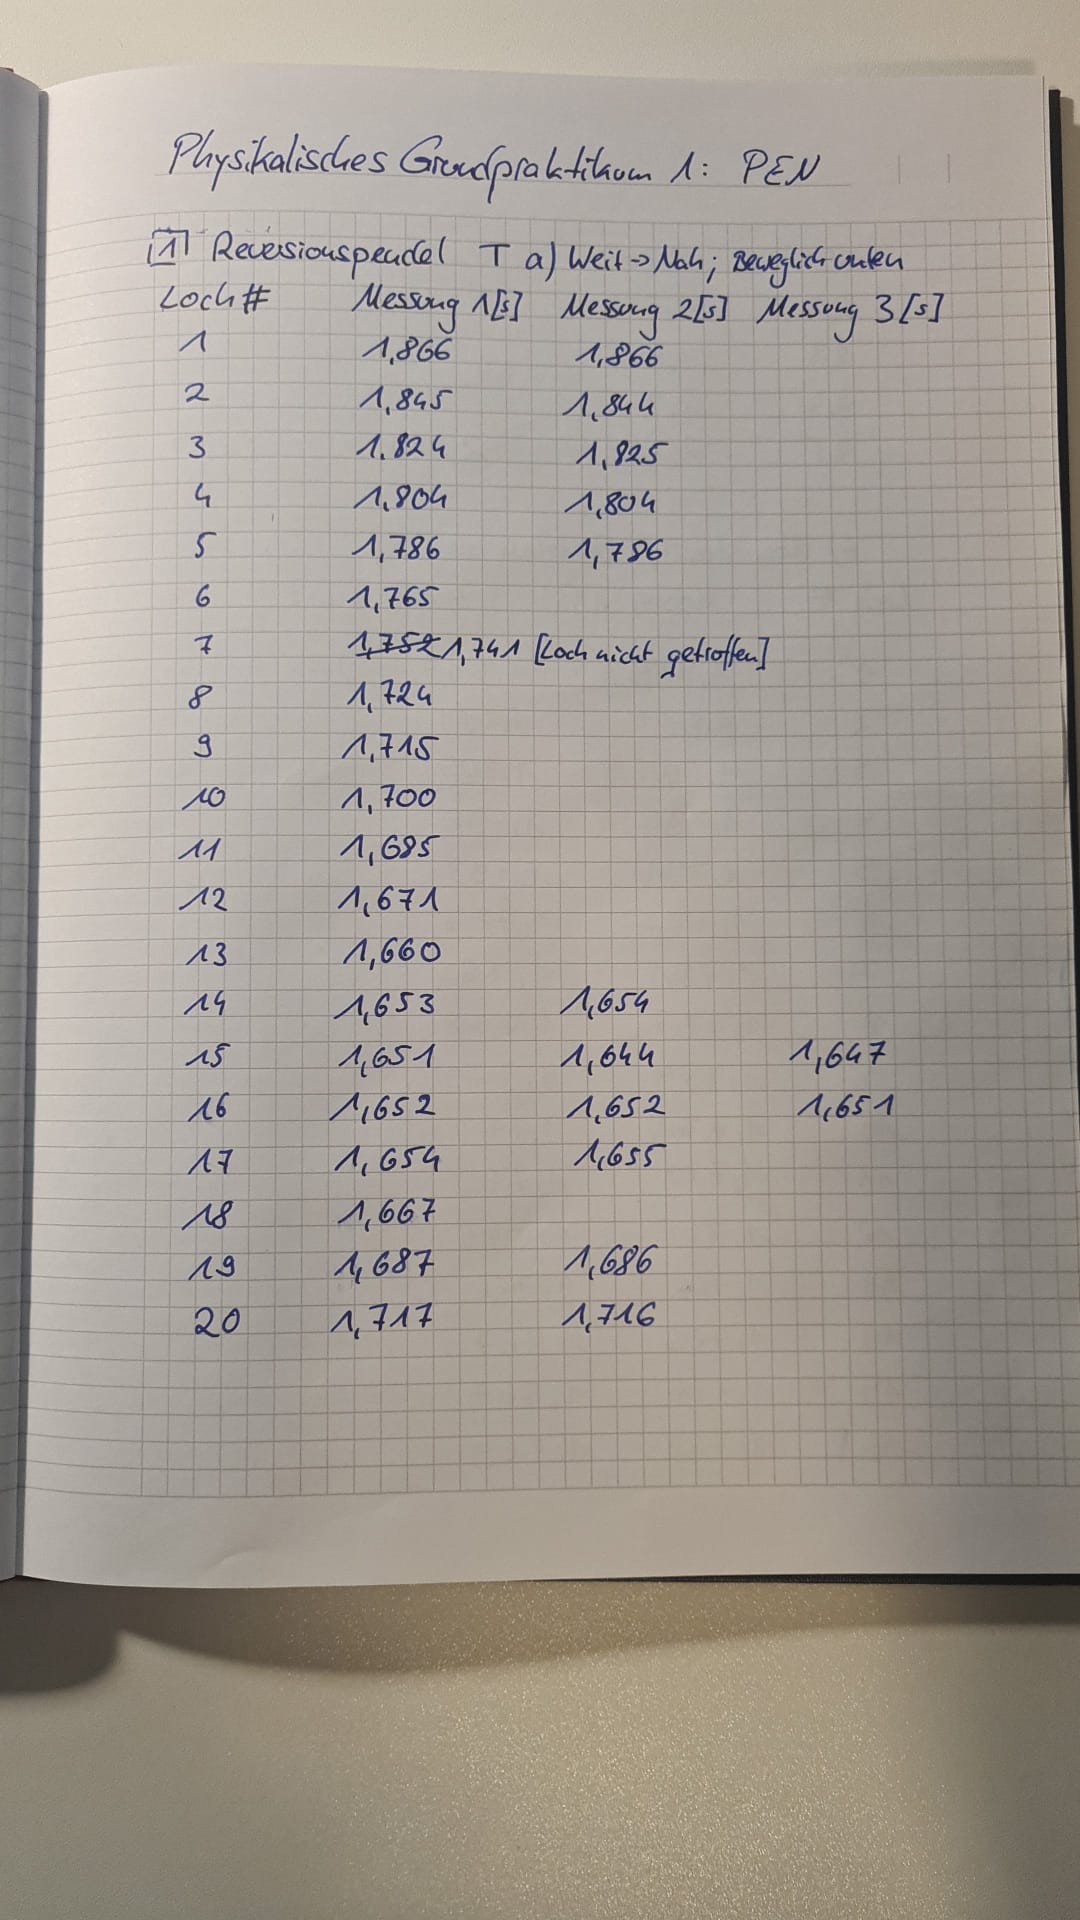 Physikalisches Grundpraktikum 1: PEN
1 Reversionspendel T a) Weit→Nah; Beweglich unten
Loch# Messung 1[s] Messung 2[s] Messung 3[s]
1 1,866 1,866
2 1,845 1,844
3 1.824 1,825
4 1,804 1,804
5 1,786 1,786
6 1,765
7 1,752 1,741 [Loch nicht getroffen]
8 1,724
9 1,715
10 1,700
11 1,685
12 1,671
13 1,660
14 1,653 1,654
15 1,651 1,644 1,647
16 1,652 1,652 1,651
17 1,654 1,655
18 1,667
19 1,687 1,686
20 1,717 1,716